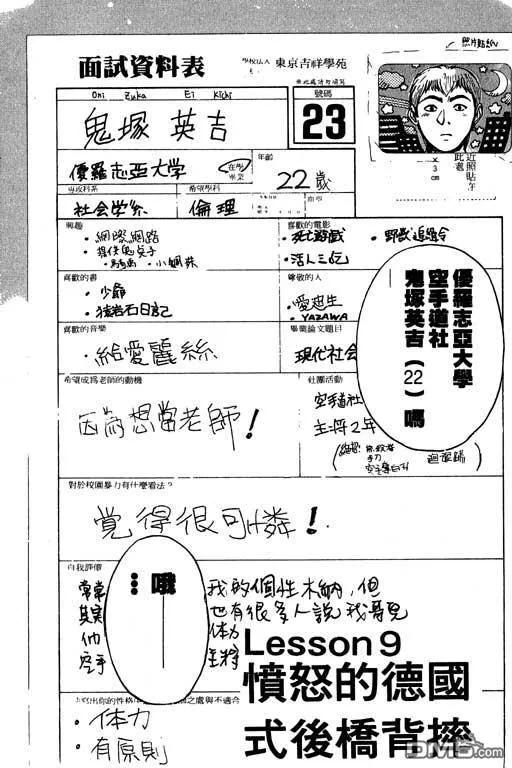 照片黏紙
面試資料表
學校法人 東京吉祥學苑
Oni zuka Ei kichi
鬼塚 英吉
號碼
23
近照貼在
此處
x 3cm
優羅志亞大学
在學
年齡
22歲
專攻科系
社会学系
希望學科
倫理
興趣
・網際網路
喜歡的電影
・死亡遊戲
・活人三仏
喜歡的書
・少爺
・猿岩石日記
尊敬的人
・愛迪生
・YAZAWA
喜歡的音樂
・給愛麗絲
畢業論文題目
現代社会
優羅志亞大學
空手道社
鬼塚英吉(22)嗎
希望成為老師的動機
因為想當老師!
社團活動
空手道社
主将2年
對於校園暴力有什麼看法?
覚得很可憐!
自我評價
常常
其実
他
空手
哦
…
我的個性木納,但
也有很多人說我勇
体力
主将
Lesson 9
憤怒的德國
式後橋背摔
・体力
・有原則